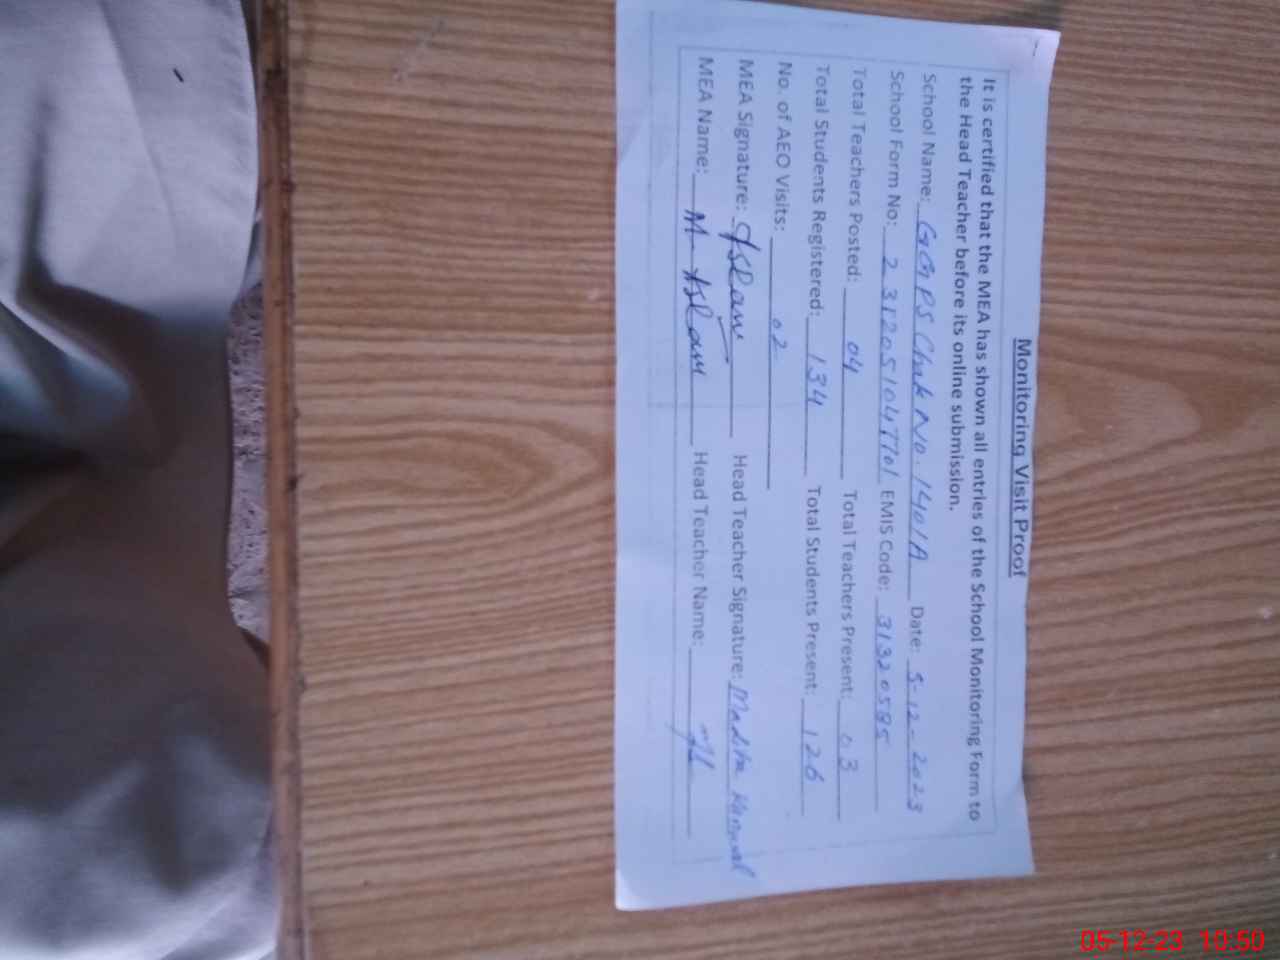 Monitoring Visit Proof
It is certified that the MEA has shown all entries of the School Monitoring Form to
the Head Teacher before its online submission.
School Name: GGPS Chak No. 140/A Date: 5-12-2023
School Form No: 2312051047701 EMIS Code: 31320585
Total Teachers Posted: 04 Total Teachers Present: 03
Total Students Registered: 134 Total Students Present: 126
No. of AEO Visits: 02
MEA Signature: Aslam Head Teacher Signature: Madiha Kanwal
MEA Name: M. Aslam Head Teacher Name:
05-12-23 10:50